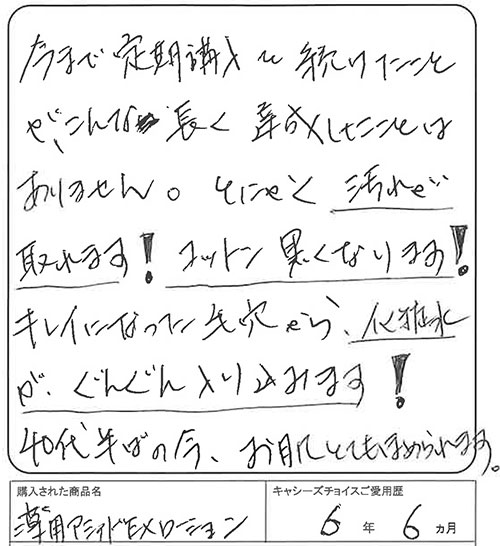 今まで定期購入で続けたこと
が、こんな長く達成したことは
ありません。とにかく汚れが
取れます！コットン黒くなります！
キレイになった毛穴から、化粧水
が、ぐんぐん入り込みます！
40代半ばの今、お肌とてもほめられます。
購入された商品名
キャシーズチョイスご愛用歴
薬用アシッドEXローション
6年6カ月